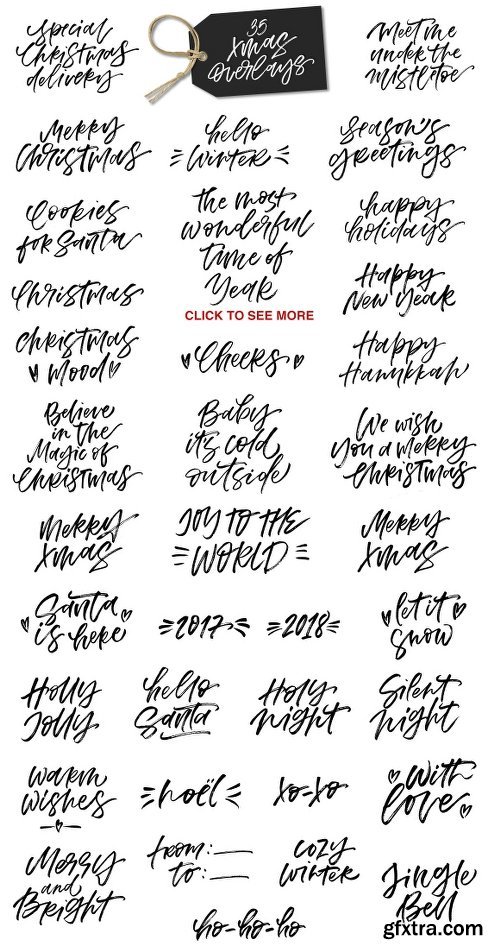 special
Christmas
delivery
35
xmas
overlays
Meet me
under the
mistletoe
Merry
Christmas
hello
winter
Season's
greetings
Cookies
for Santa
the most
wonderful
time of
Year
happy
holidays
Christmas
Happy
New Year
CLICK TO SEE MORE
Christmas
mood
Cheers
Happy
Hanukkah
Believe
in the
Magic of
Christmas
Baby
it's cold
outside
We wish
you a merry
Christmas
Merry
Xmas
JOY TO THE
WORLD
Merry
Xmas
Santa
is here
2017
2018
let it
snow
Holly
Jolly
hello
Santa
Holy
Night
Silent
Night
warm
wishes
noël
xo-xo
with
love
Merry
and
Bright
from:
to:
cozy
winter
Jingle
Bell
ho-ho-ho
gfxtra.com